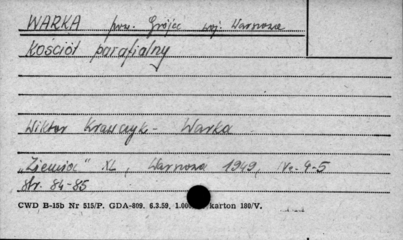 WARKA pow. Grójec woj. Warszawa
Kościół parafialny
Wiktor Krawczyk - Warka
"Ziemia" XL, Warszawa 1949, Nr. 4-5
str. 84-85
CWD B-15b Nr 515/P. GDA-809. 6.3.59. 1.000 karton 180/V.